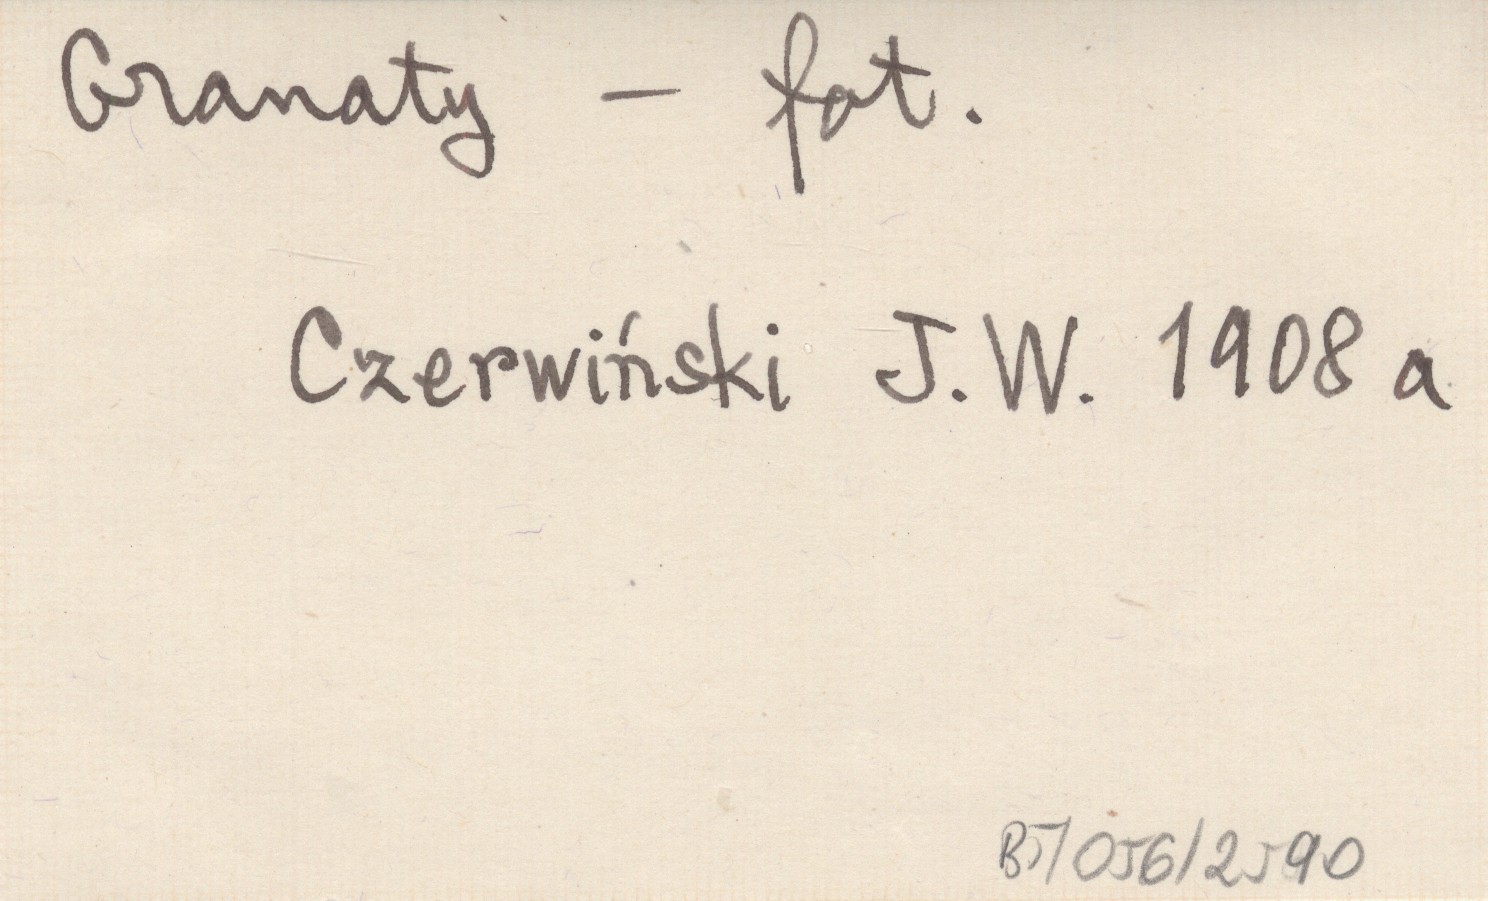 Granaty - fot.
Czerwiński J.W. 1908 a
B5/056/2590